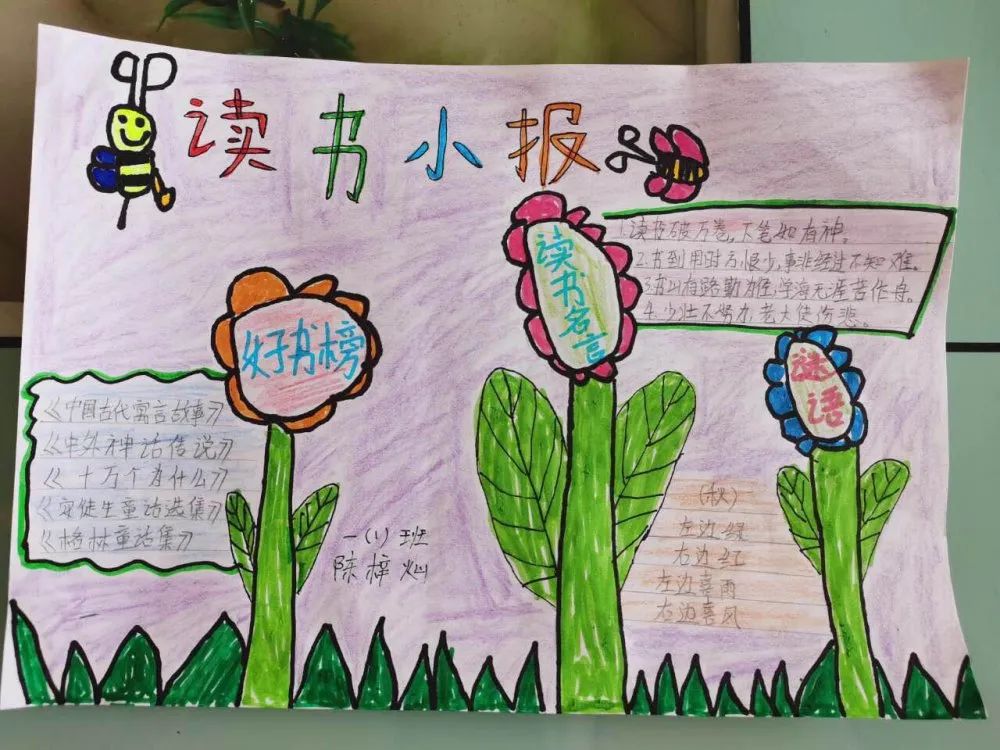 读书小报
好书榜
《中国古代寓言故事》
《中外神话传说》
《十万个为什么》
《安徒生童话选集》
《格林童话集》
一(1)班
陈梓灿
读书名言
1.读书破万卷，下笔如有神。
2.书到用时方恨少，事非经过不知难。
3.书山有路勤为径，学海无涯苦作舟。
4.少壮不努力，老大徒伤悲。
谜语
(秋)
左边绿
右边红
左边喜雨
右边喜风